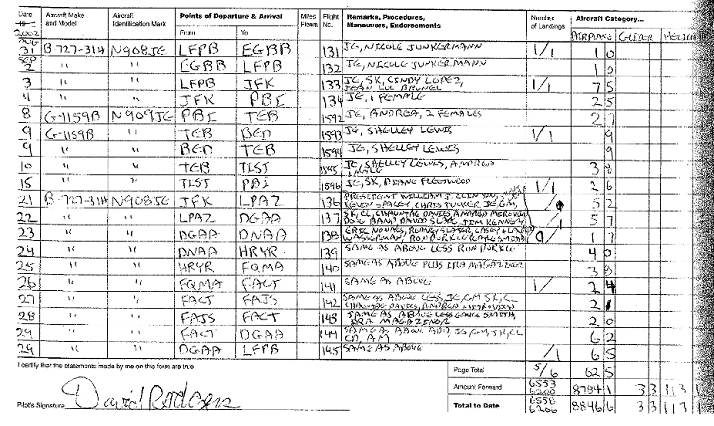 Date
Aircraft Make and Model
Aircraft Identification Mark
Points of Departure & Arrival
From To
Miles Flown
Flight No.
Remarks, Procedures, Maneuvers, Endorsements
Number of Landings
Aircraft Category...
2002
AIRPLANE GLIDER
AUG 31 B-727-31H N908JE LFPB EGBB 131 JE, NICOLE JUNKERMANN 1/1 1 0
SEP 2 " " EGBB LFPB 132 JE, NICOLE JUNKERMANN 1 0
3 " " LFPB JFK 133 JE, SK, CINDY LOPEZ, JEAN LUC BRUNEL 1/1 7 5
4 " " JFK PBI 134 JE, 1 FEMALE 2 5
8 G-1159B N909JE PBI TEB 1592 JE, ANDREA, 2 FEMALES 2 7
9 G-1159B " TEB BED 1593 JE, SHELLEY LEWIS 1/1 9
9 " " BED TEB 1594 JE, SHELLEY LEWIS 9
10 " " TEB TIST 1595 JE, SHELLEY LEWIS, 3 8
15 " " TIST PBI 1596 JE, SK, FLEETWOOD 1/1 2 6
21 B-727-31H N908JE JFK LPAZ 136 PRESIDENT WILLIAM J. CLINTON, KEVEN SPACEY, CHRIS TUCKER, JE, GM, 5 2
22 " " LPAZ DGAA 137 SK, CL, CHAUNTAE DAVIES, DOUG BAND, DAVID SLANG, JIM KENNEZ, 5 7
23 " " DGAA DNAA 138 ERIC NONACS, CASEY WASSERMAN, RON BURKLE 1 7
24 " " DNAA HRYR 139 SAME AS ABOVE LESS RON BURKLE 4 0
25 " " HRYR FQMA 140 SAME AS ABOVE PLUS IRA MAGAZINER 3 8
26 " " FQMA FACT 141 SAME AS ABOVE 1/ 2 4
27 " " FACT FAJS 142 SAME AS ABOVE LESS, JE, GM, SK, CL CHAUNTAE DAVIES, 2 1
28 " " FAJS FACT 143 SAME AS ABOVE LESS SMITH, IRA MAGAZINER 2 0
29 " " FACT DGAA 144 SAME AS ABOVE ADD, JE, GM, SK, CL CD, AM 6 2
29 " " DGAA LFPB 145 SAME AS ABOVE /1 6 5
I certify that the statements made by me on this form are true.
Page Total 5/6 62 5
Amount Forward 6553 6200 8784 1 3 3
Pilot's Signature David Rodgers
Total to Date 6558 6206 8846 6 3 3